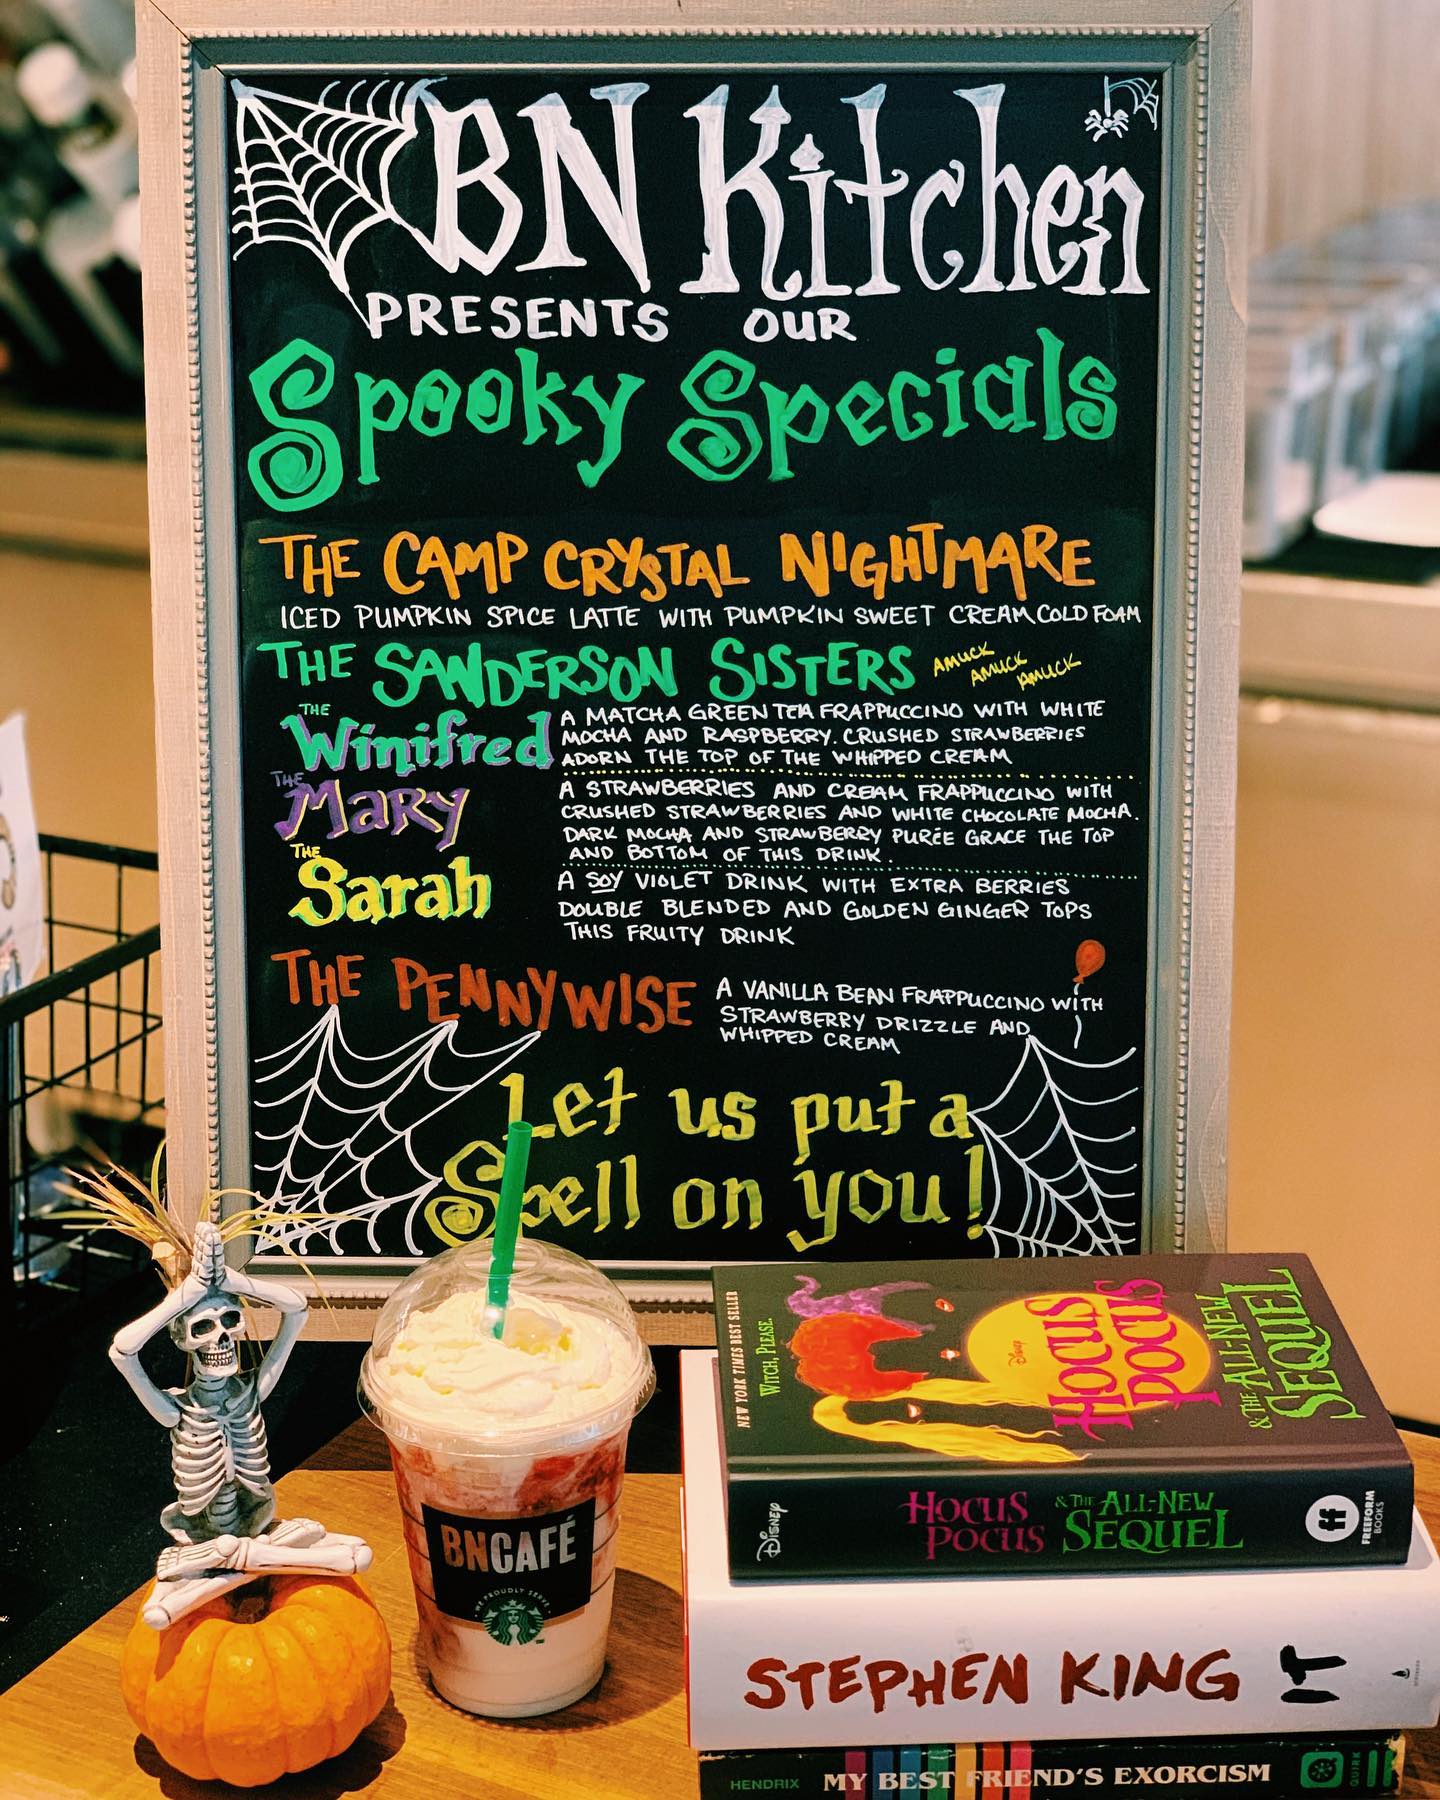 BN Kitchen
PRESENTS OUR
Spooky Specials
THE CAMP CRYSTAL NIGHTMARE
ICED PUMPKIN SPICE LATTE WITH PUMPKIN SWEET CREAM COLD FOAM
THE SANDERSON SISTERS
AMUCK
AMUCK
AMUCK
THE
Winifred
A MATCHA GREEN TEA FRAPPUCCINO WITH WHITE
MOCHA AND RASPBERRY. CRUSHED STRAWBERRIES
ADORN THE TOP OF THE WHIPPED CREAM
THE
Mary
A STRAWBERRIES AND CREAM FRAPPUCCINO WITH
CRUSHED STRAWBERRIES AND WHITE CHOCOLATE MOCHA.
DARK MOCHA AND STRAWBERRY PURÉE GRACE THE TOP
AND BOTTOM OF THIS DRINK.
THE
Sarah
A SOY VIOLET DRINK WITH EXTRA BERRIES
DOUBLE BLENDED AND GOLDEN GINGER TOPS
THIS FRUITY DRINK
THE PENNYWISE
A VANILLA BEAN FRAPPUCCINO WITH
STRAWBERRY DRIZZLE AND
WHIPPED CREAM
Let us put a
Spell on you!
BNCAFÉ
WE PROUDLY SERVE
NEW YORK TIMES BEST SELLER
WITCH, PLEASE.
Disney
HOCUS
POCUS
& THE ALL-NEW
SEQUEL
Disney
HOCUS
POCUS
& THE ALL-NEW
SEQUEL
ff
FREEFORM
BOOKS
STEPHEN KING IT
HENDRIX MY BEST FRIEND'S EXORCISM QUIRK